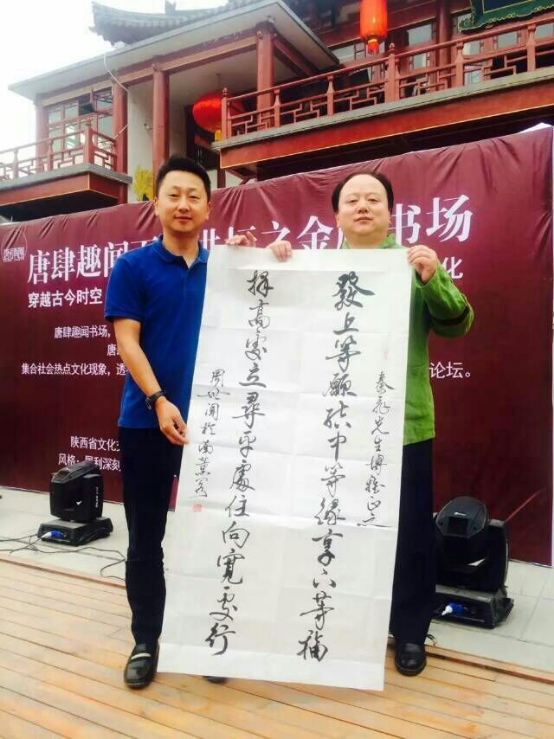 唐肆趣闻 讲坛之金 书场
穿越古今时空 化
唐肆趣闻书场，
唐
集合社会热点文化现象，透 论坛。
陕西省文化
风格：犀利深刻
發上等願結中等緣享下等福
擇高處立尋平處住向寬處行
先生 正之